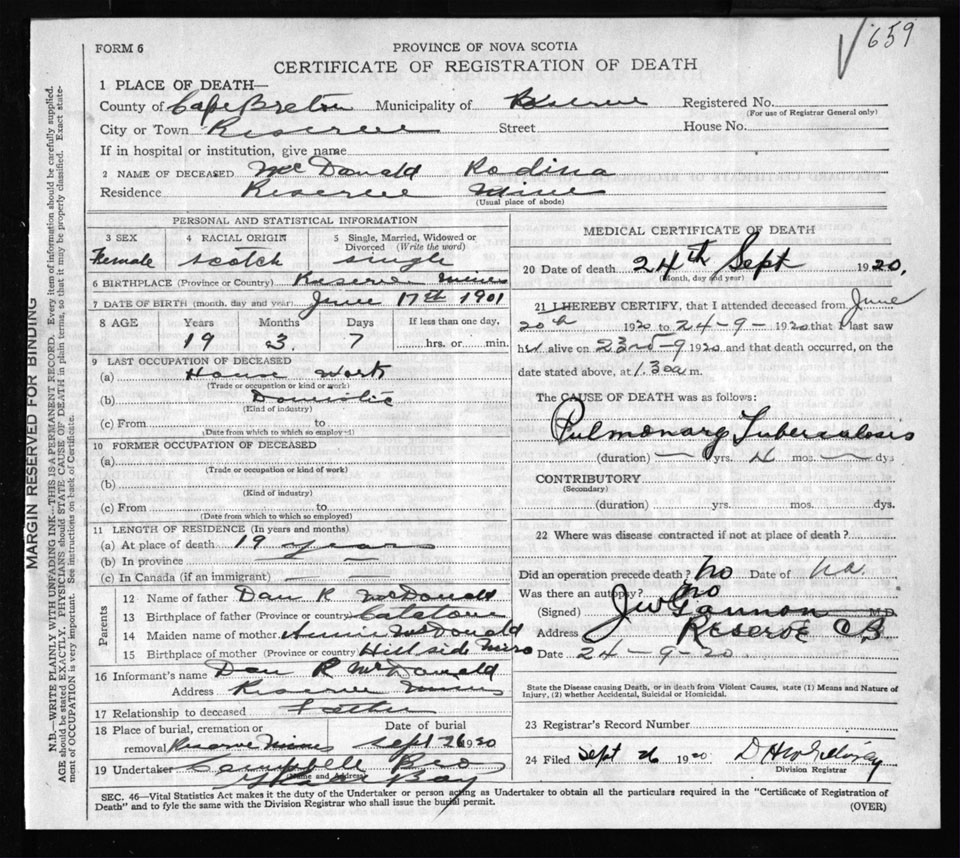 659
FORM 6
PROVINCE OF NOVA SCOTIA
CERTIFICATE OF REGISTRATION OF DEATH
1 PLACE OF DEATH—
County of Cape Breton Municipality of Reserve Registered No.
(For use of Registrar General only)
City or Town Reserve Street House No.
If in hospital or institution, give name
2 NAME OF DECEASED McDonald Rodina
Residence Reserve Mines
(Usual place of abode)
PERSONAL AND STATISTICAL INFORMATION
3 SEX 4 RACIAL ORIGIN 5 Single, Married, Widowed or Divorced (Write the word)
Female Scotch Single
6 BIRTHPLACE (Province or Country) Reserve Mines
7 DATE OF BIRTH (month, day and year) June 17th 1901
8 AGE Years Months Days If less than one day,
19 3 7 hrs. or min.
9 LAST OCCUPATION OF DECEASED
(a) House Work
(Trade or occupation or kind or work)
(b) Domestic
(Kind of industry)
(c) From to
(Date from which to which so employed)
10 FORMER OCCUPATION OF DECEASED
(a)
(Trade or occupation or kind of work)
(b)
(Kind of industry)
(c) From to
(Date from which to which so employed)
11 LENGTH OF RESIDENCE (In years and months)
(a) At place of death 19 years
(b) In province
(c) In Canada (if an immigrant)
Parents
12 Name of father Dan R McDonald
13 Birthplace of father (Province or country) Catalone
14 Maiden name of mother Annie McDonald
15 Birthplace of mother (Province or country) Hillside Mira
16 Informant's name Dan R McDonald
Address Reserve Mines
17 Relationship to deceased Father
18 Place of burial, cremation or removal Reserve Mines Date of burial Sept 26 1920
19 Undertaker Campbell Bro
(Name and Address) Bay
MEDICAL CERTIFICATE OF DEATH
20 Date of death 24th Sept 1920.
(Month, day and year)
21 I HEREBY CERTIFY, that I attended deceased from June
20th 1920 to 24-9-1920 that I last saw
her alive on 23rd-9 1920 and that death occurred, on the
date stated above, at 1.30 a m.
The CAUSE OF DEATH was as follows:
Pulmonary Tuberculosis
(duration) — yrs. 4 mos. — dys
CONTRIBUTORY
(Secondary)
(duration) yrs. mos. dys.
22 Where was disease contracted if not at place of death?
Did an operation precede death? No Date of na.
Was there an autopsy? No
(Signed) J W Gannon M.D.
Address Reserve CB
Date 24-9-20
State the Disease causing Death, or in death from Violent Causes, state (1) Means and Nature of
Injury, (2) whether Accidental, Suicidal or Homicidal.
23 Registrar's Record Number
24 Filed Sept 26 1920
Division Registrar
SEC. 46—Vital Statistics Act makes it the duty of the Undertaker or person acting as Undertaker to obtain all the particulars required in the "Certificate of Registration of
Death" and to fyle the same with the Division Registrar who shall issue the burial permit.
(OVER)
MARGIN RESERVED FOR BINDING
N.B.—WRITE PLAINLY WITH UNFADING INK—THIS IS A PERMANENT RECORD. Every item of information should be carefully supplied.
AGE should be stated EXACTLY. PHYSICIANS should STATE CAUSE OF DEATH in plain terms, so that it may be properly classified. Exact state-
ment of OCCUPATION is very important. See instructions on back of Certificate.